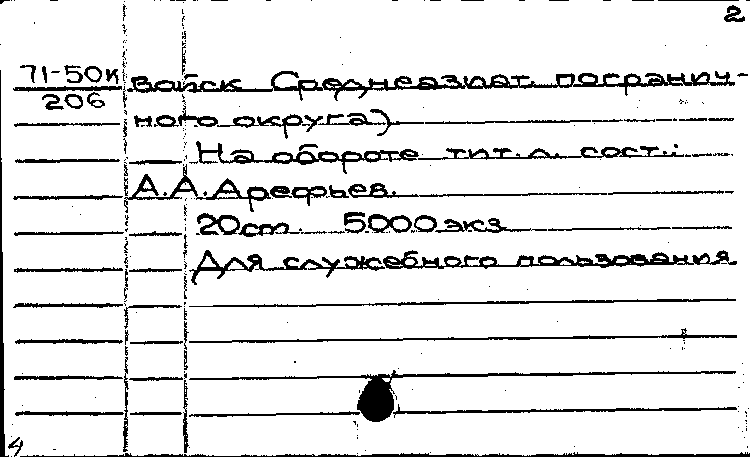 2
71-50к войск Среднеазиат. погранич-
206
ного округа).
На обороте тит. л. сост.:
А.А.Арефьев.
20см 5000экз
Для служебного пользования
4